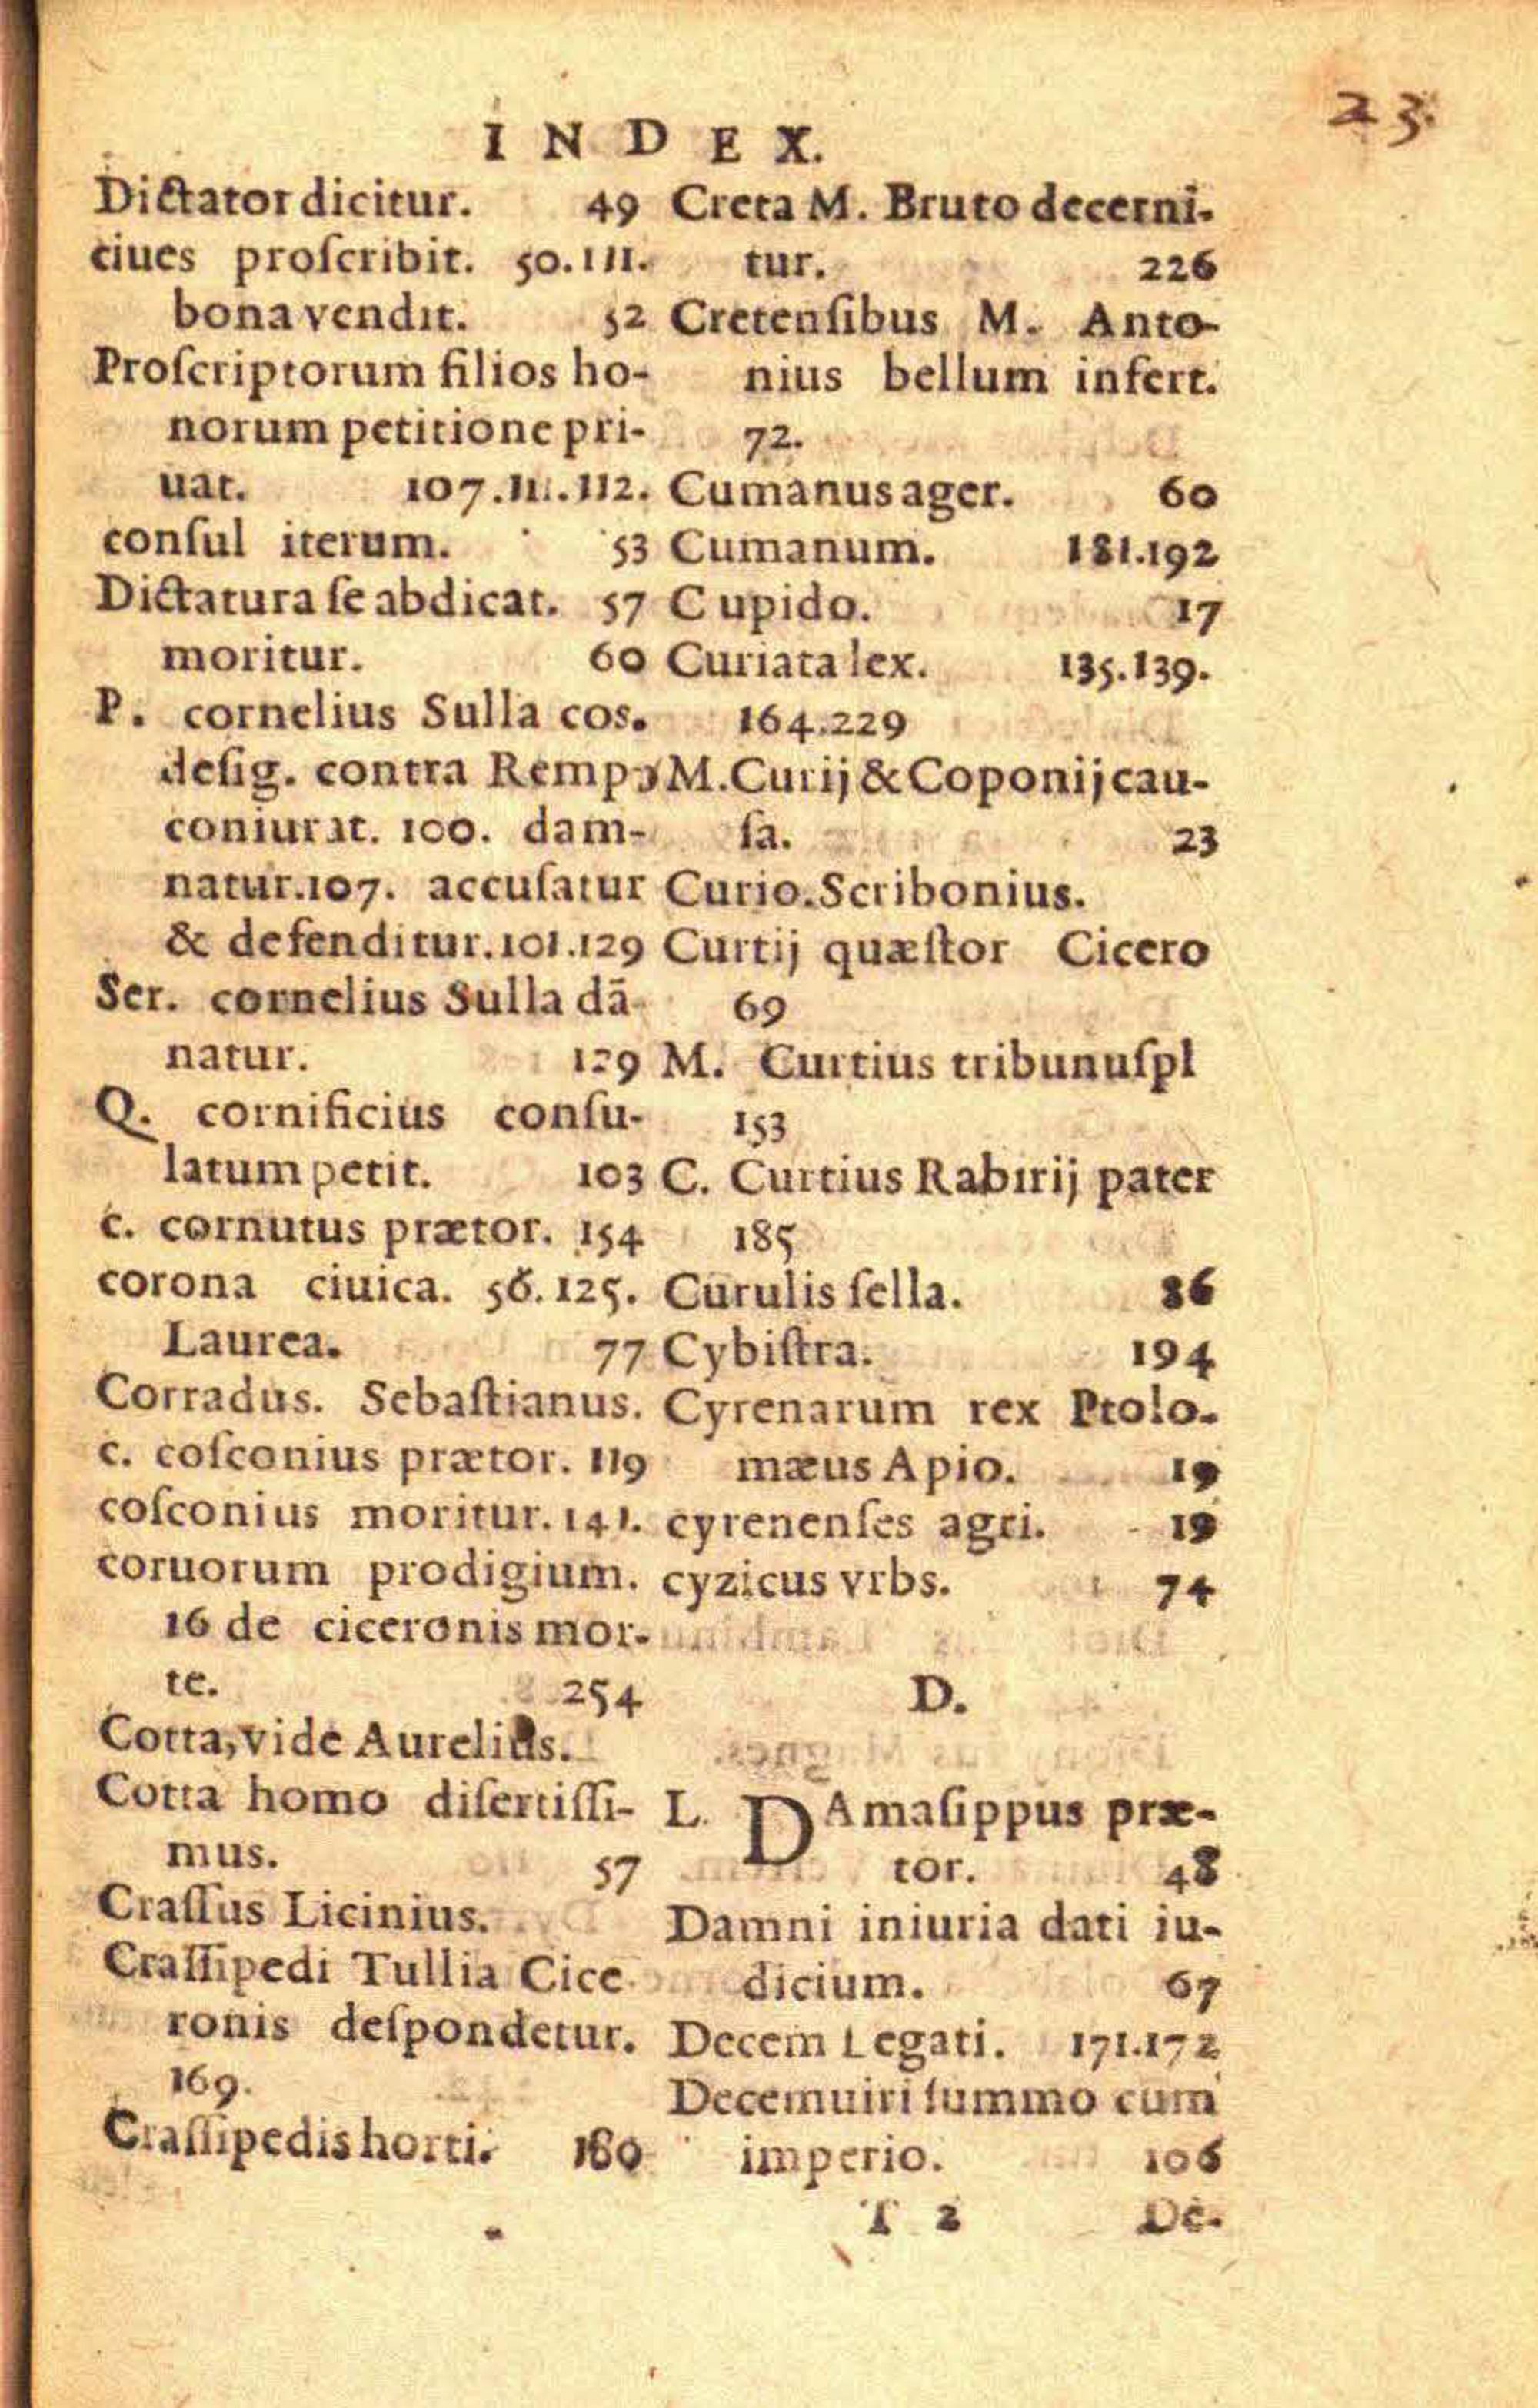 23.
INDEX.
Dictator dicitur. 49
ciues proſcribit. 50.111.
bona vendit. 52
Proſcriptorum filios ho-
norum petitione pri-
uat. 107.111.112.
conſul iterum. 53
Dictatura ſe abdicat. 57
moritur. 60
P. cornelius Sulla cos.
deſig. contra Remp
coniurat. 100. dam-
natur. 107. accuſatur
& defenditur. 101.129
Ser. cornelius Sulla dā-
natur. 129
Q. cornificius conſu-
latum petit. 103
c. cornutus prætor. 154
corona ciuica. 56.125.
Laurea. 77
Corradus. Sebaſtianus.
c. coſconius prætor. 119
coſconius moritur. 141.
coruorum prodigium.
16 de ciceronis mor-
te. 254
Cotta, vide Aurelius.
Cotta homo diſertiſſi-
mus. 57
Craſſus Licinius.
Craſſipedi Tullia Cice
ronis deſpondetur.
169.
Craſſipedis horti. 160
Creta M. Bruto decerni-
tur. 226
Cretenſibus M. Anto-
nius bellum infert.
72.
Cumanus ager. 60
Cumanum. 181.192
Cupido. 17
Curiata lex. 135.139.
164.229
M. Curij & Coponij cau-
ſa. 23
Curio. Scribonius.
Curtij quæſtor Cicero
69
M. Curtius tribunuſpl
153
C. Curtius Rabirij pater
185
Curulis ſella. 86
Cybiſtra. 194
Cyrenarum rex Ptolo-
mæus Apio. 19
cyrenenſes agri. 19
cyzicus vrbs. 74
D.
L. DAmaſippus præ-
tor. 48
Damni iniuria dati iu-
dicium. 67
Decem Legati. 171.172
Decemuiri ſummo cum
imperio. 106
T 2 De-